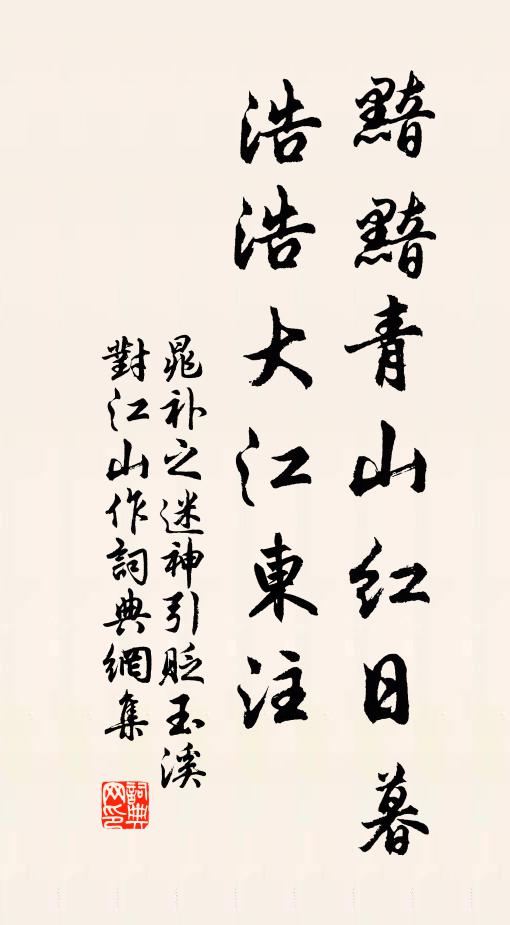 黯黯青山红日暮
浩浩大江東注
晁补之迷神引貶玉溪
對江山作詞典網集
詞典网印